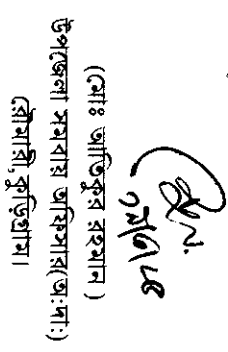 (মোঃ আতিকুর রহমান)
উপজেলা সমবায় অফিসার(অ:দা:)
রৌমারী, কুড়িগ্রাম।